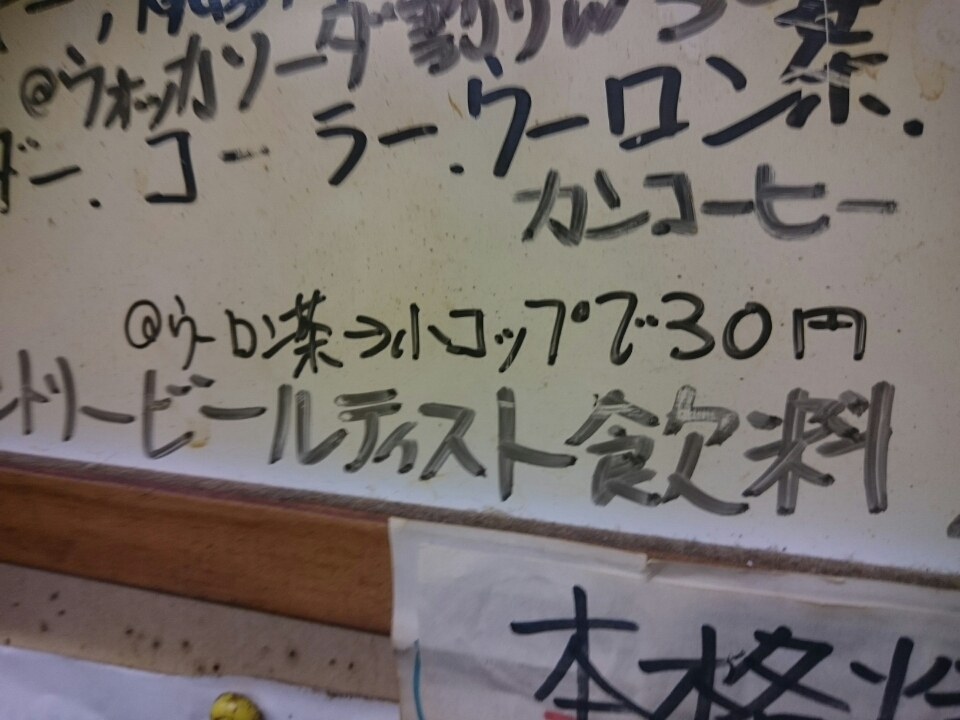 @ウォッカソーダ割り
ダー.コーラー.ウーロン茶.
カンコーヒー
@ウーロン茶→小コップで30円
ントリービールティスト飲料
本格